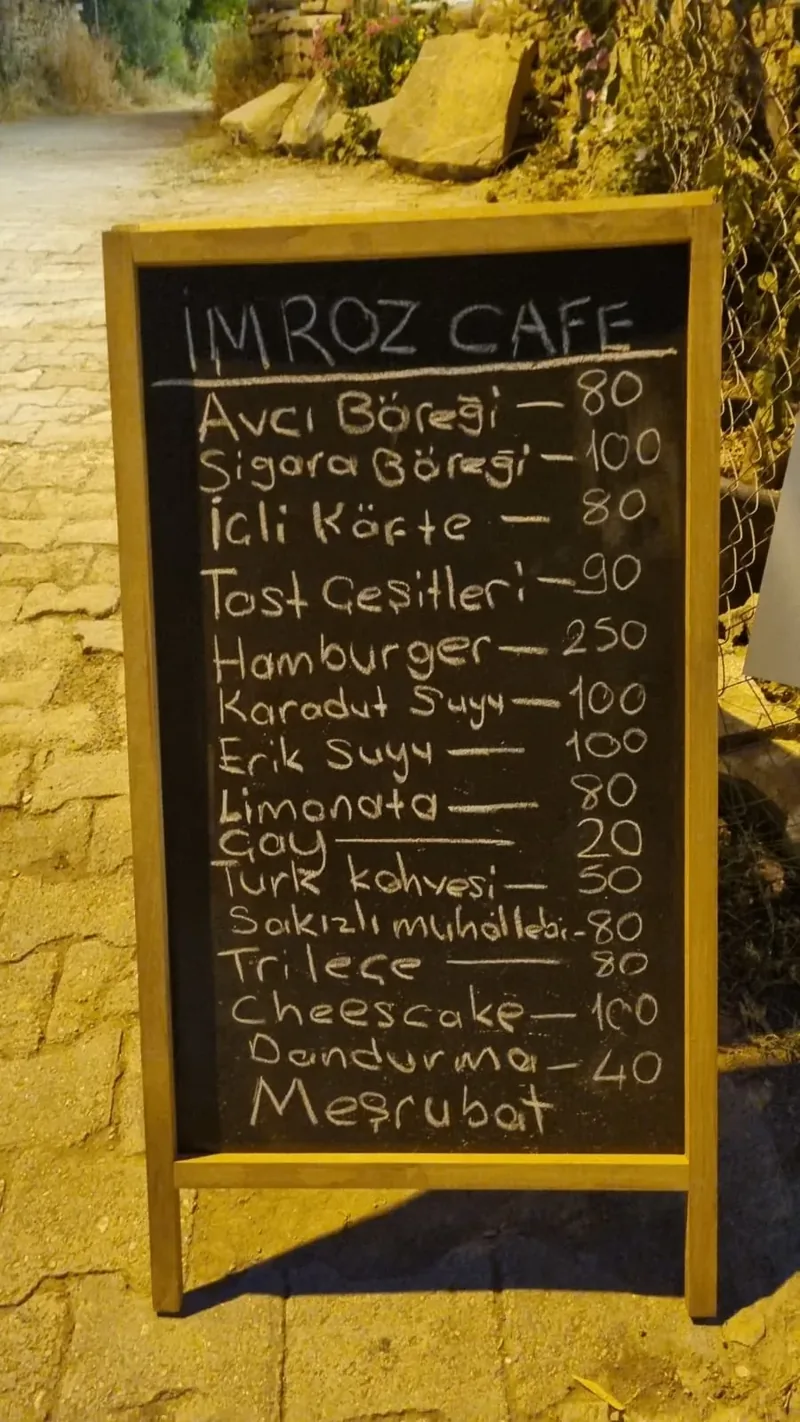 İMROZ CAFE
Avcı Böreği — 80
Sigara Böreği — 100
İçli Köfte — 80
Tost Çeşitleri — 90
Hamburger — 250
Karadut Suyu — 100
Erik Suyu — 100
Limonata — 80
Çay — 20
Türk kahvesi — 50
Sakızlı muhallebi - 80
Trileçe — 80
Cheescake — 100
Dondurma — 40
Meşrubat